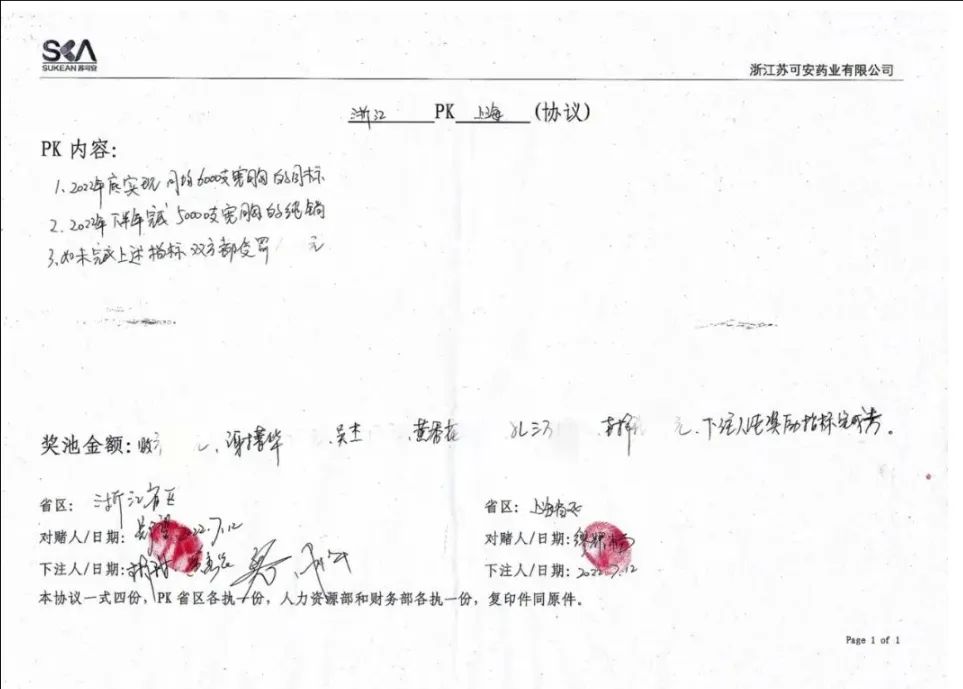 SKA
SUKEAN 苏可安
浙江苏可安药业有限公司
浙江 PK 上海 (协议)
PK 内容:
1. 2022年底实现月均6000支宽胸的目标
2. 2022年下半年完成 50000支宽胸的纯销
3. 如未完成上述指标 双方都受罚 元
奖池金额: 元、吴杰 元、下注人员奖励指标完成者。
省区: 浙江省区
省区: 上海省区
对赌人/日期: 2022.7.12
对赌人/日期:
下注人/日期:
下注人/日期: 2022.7.12
本协议一式四份，PK 省区各执一份，人力资源部和财务部各执一份，复印件同原件。
Page 1 of 1